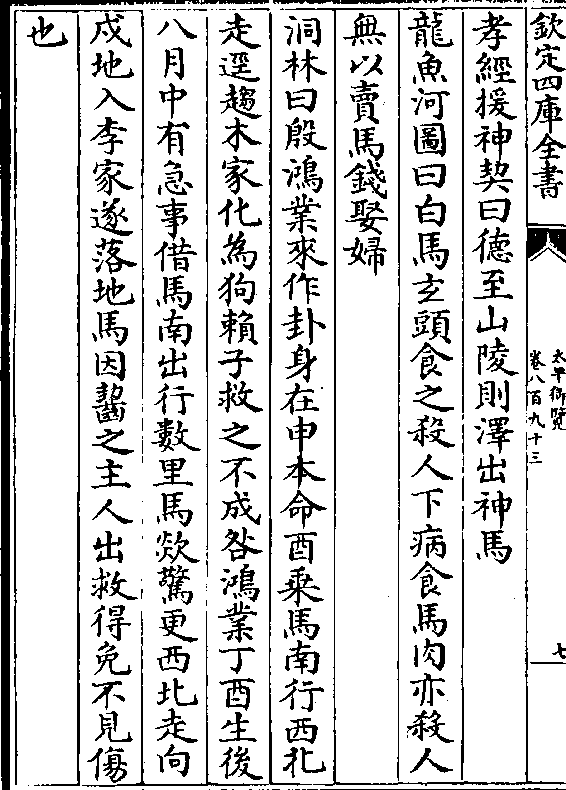 欽定四庫全書
太平御覽
卷八百九十三
七
孝經援神契曰德至山陵則澤出神馬
龍魚河圖曰白馬玄頭食之殺人下病食馬肉亦殺人
無以賣馬錢娶婦
洞林曰殷鴻業來作卦身在申本命酉乗馬南行西北
走逕趨木家化為狗賴子救之不成咎鴻業丁酉生後
八月中有急事借馬南出行數里馬欻驚更西北走向
戍地入李家遂落地馬因齧之主人出救得免不見傷
也